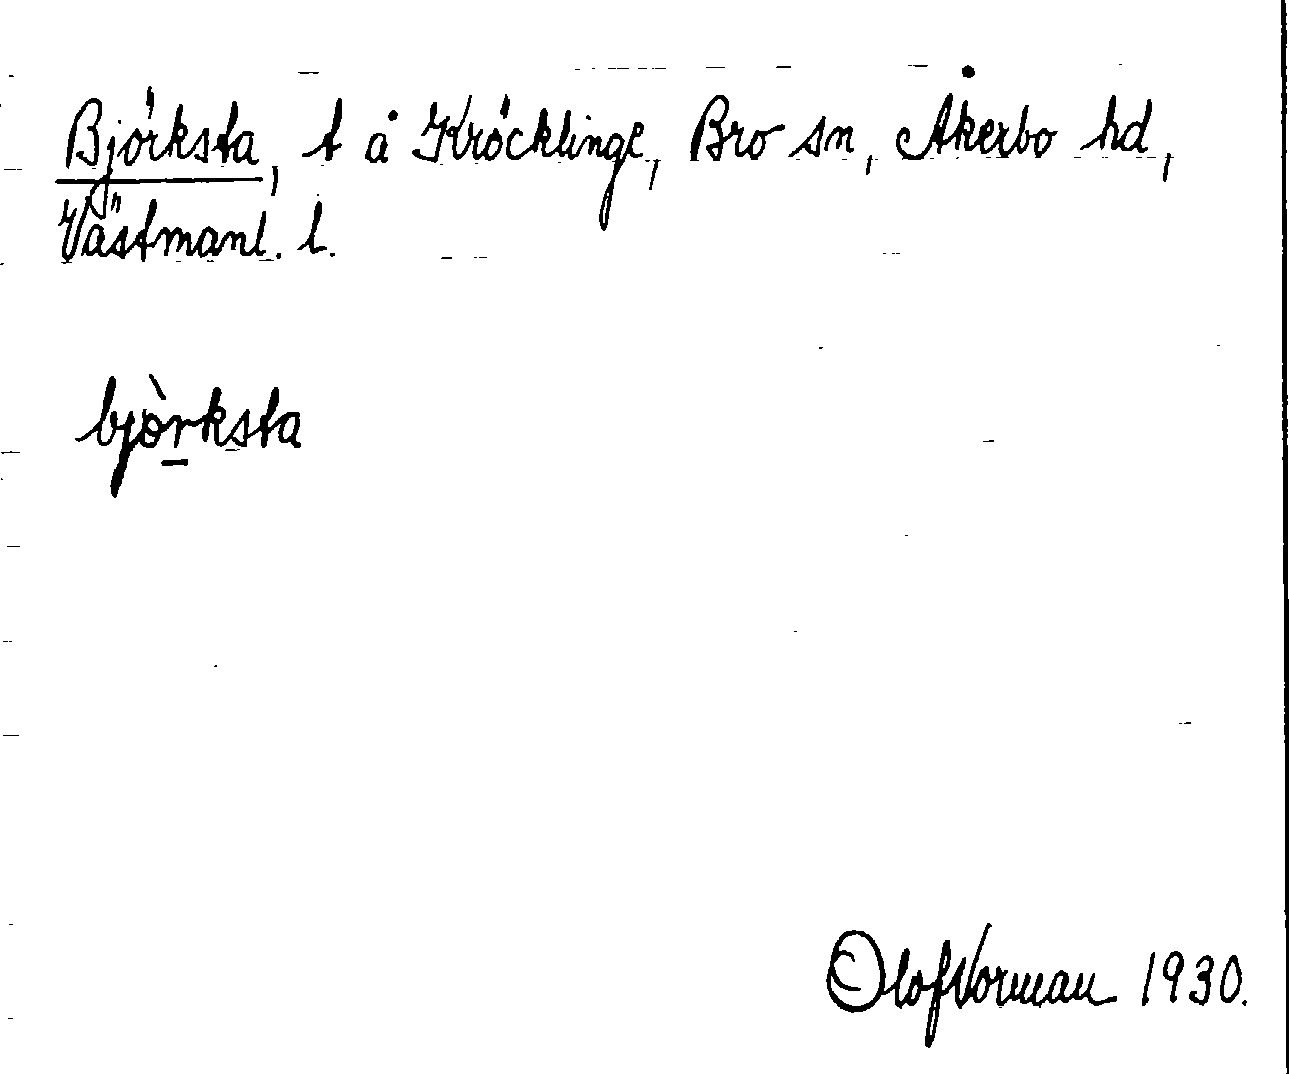 Björksta, t å Kröcklinge, Bro sn, Åkerbo hd,
Västmanl. l.
bjòrksta
Olof Norman 1930.